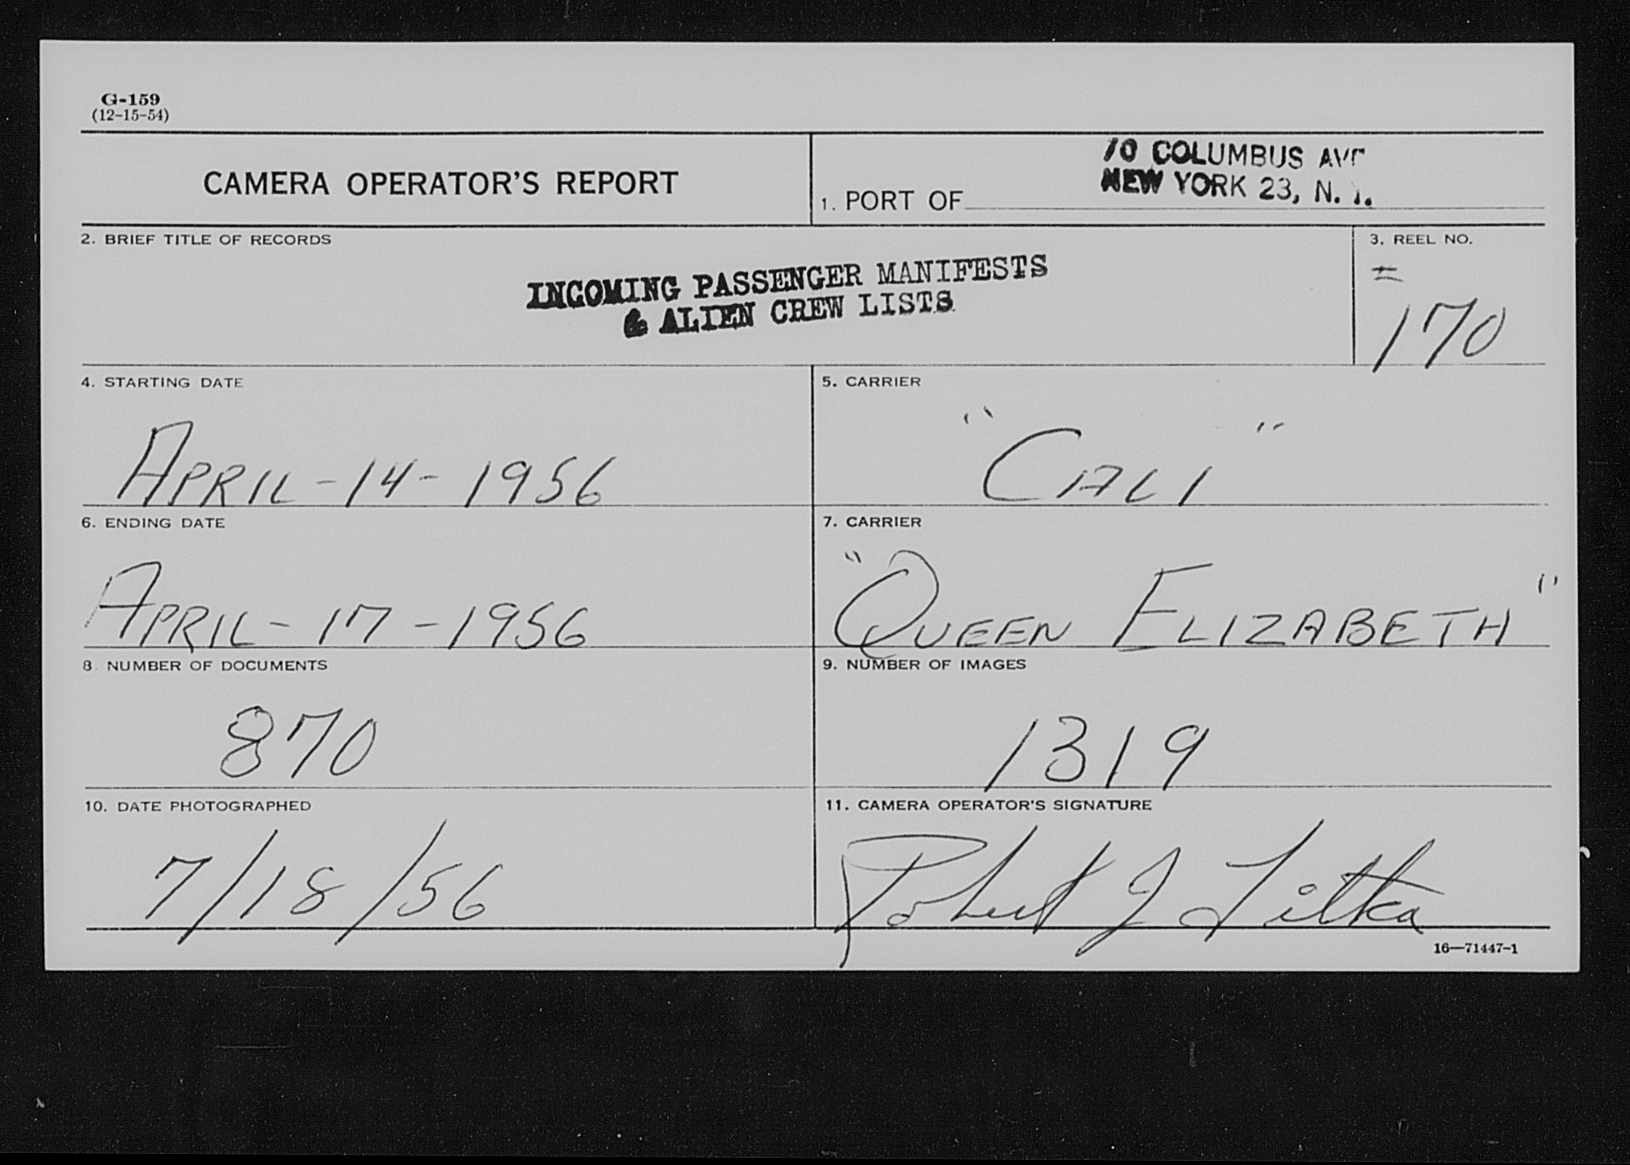 G-159
(12-15-54)
CAMERA OPERATOR'S REPORT
1. PORT OF
70 COLUMBUS AVE
NEW YORK 23, N. Y.
2. BRIEF TITLE OF RECORDS
INCOMING PASSENGER MANIFESTS
& ALIEN CREW LISTS
3. REEL NO.
=
170
4. STARTING DATE
APRIL-14-1956
5. CARRIER
"CALI"
6. ENDING DATE
APRIL-17-1956
7. CARRIER
"QUEEN ELIZABETH"
8 NUMBER OF DOCUMENTS
870
9. NUMBER OF IMAGES
1319
10. DATE PHOTOGRAPHED
7/18/56
11. CAMERA OPERATOR'S SIGNATURE
Robert J
16—71447-1